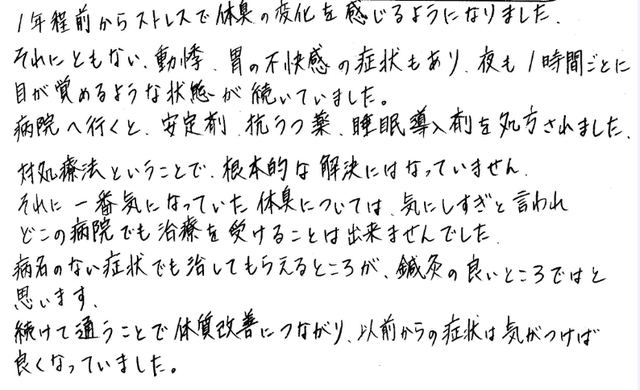 1年程前からストレスで体臭の変化を感じるようになりました.
それにともない、動悸、胃の不快感の症状もあり、夜も1時間ごとに
目が覚めるような状態が続いていました。
病院へ行くと、安定剤、抗うつ薬、睡眠導入剤を処方されました.
対処療法ということで、根本的な解決にはなっていません.
それに一番気になっていた体臭については、気にしすぎと言われ
どこの病院でも治療を受けることは出来ませんでした.
病名のない症状でも治してもらえるところが、鍼灸の良いところではと
思います.
続けて通うことで体質改善につながり、以前からの症状は気がつけば
良くなっていました。